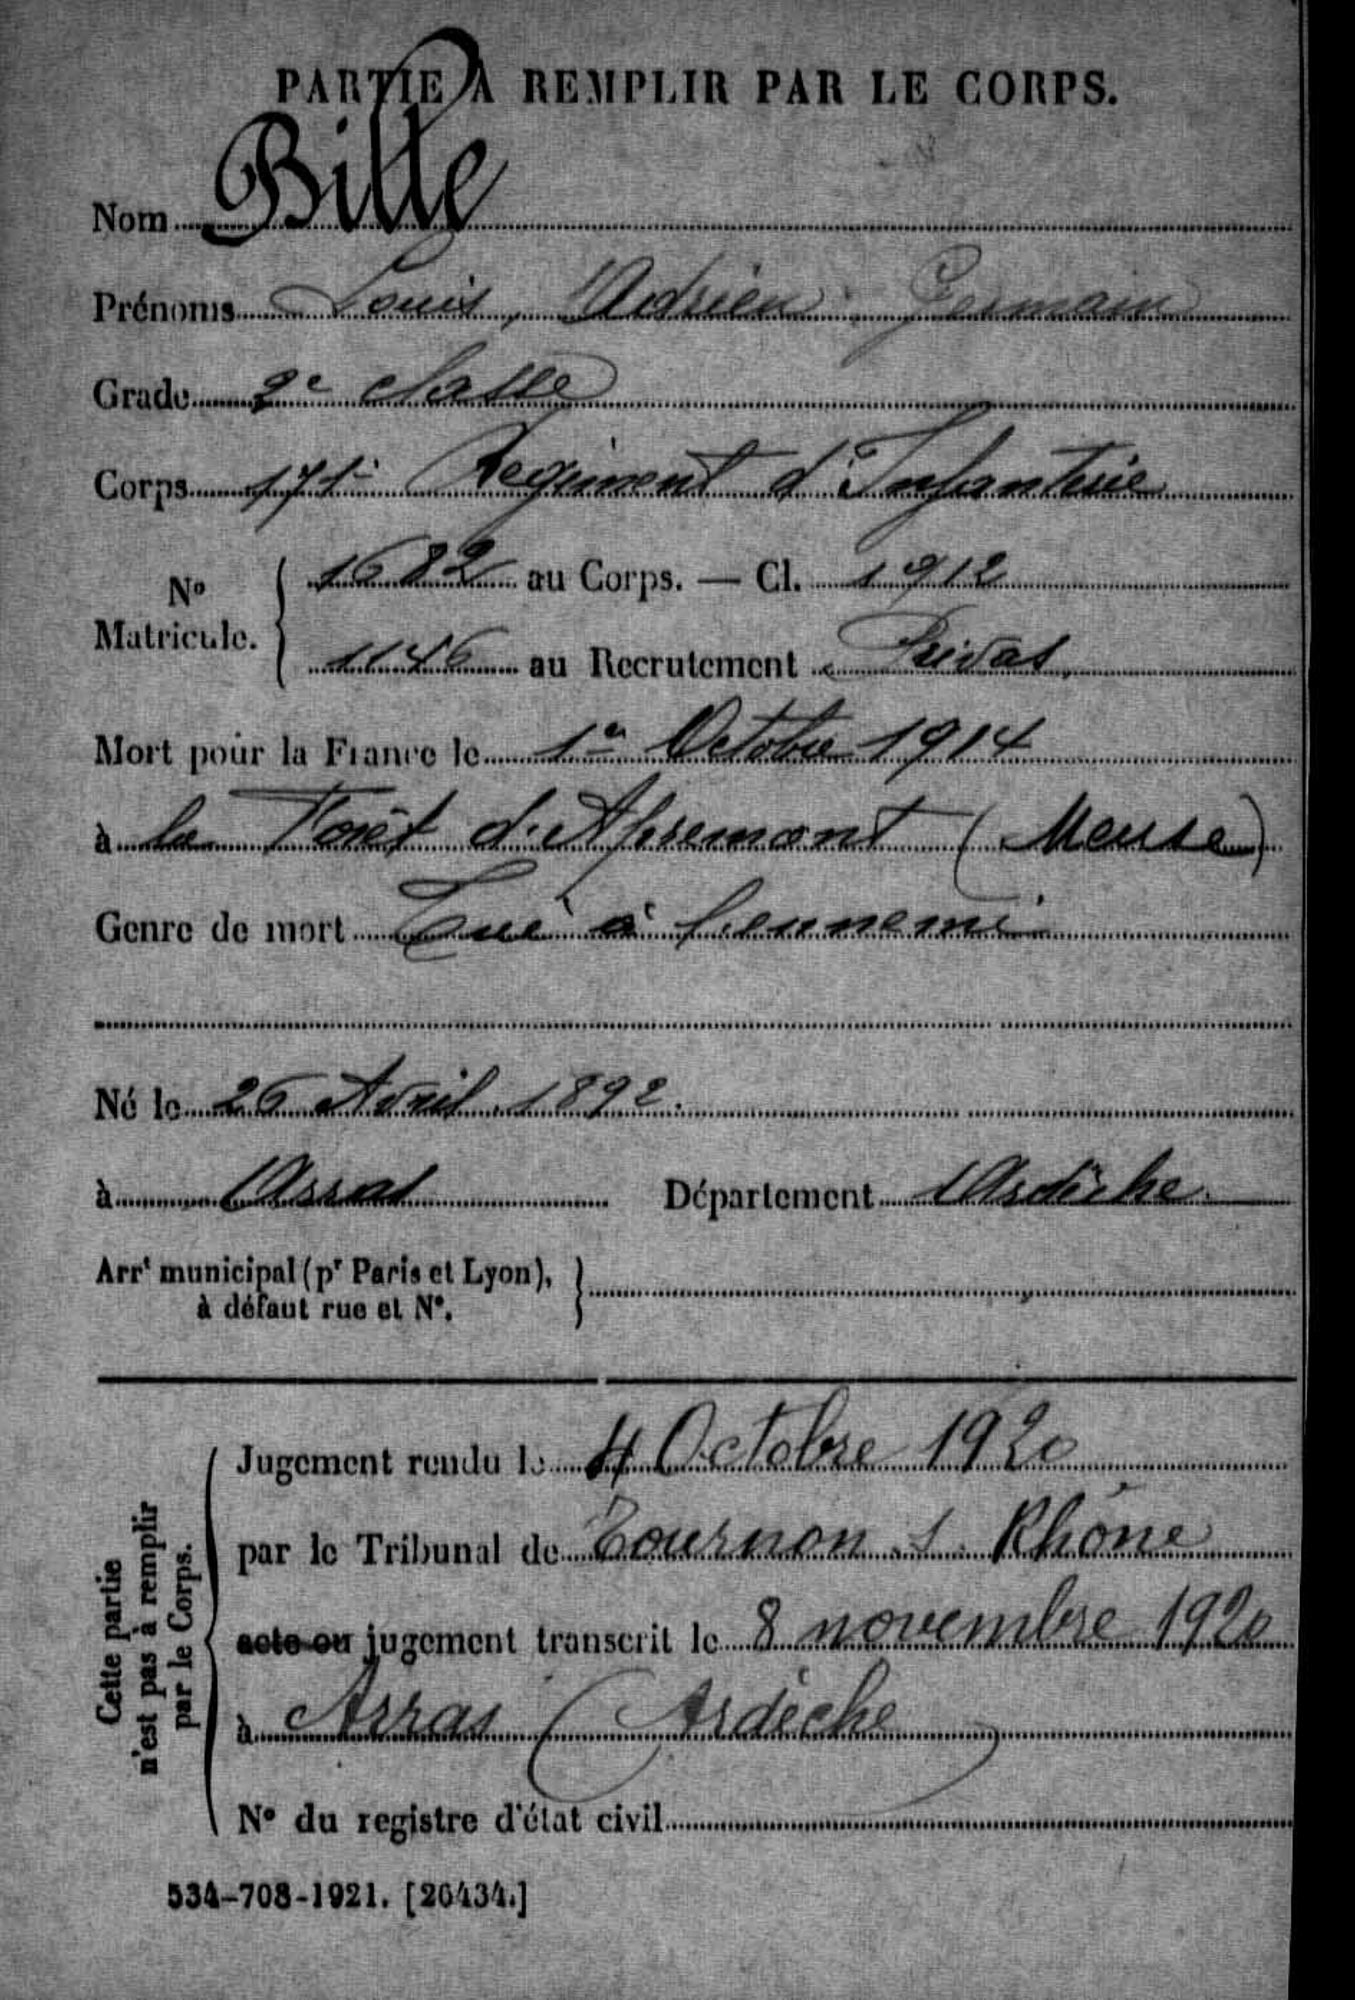 PARTIE À REMPLIR PAR LE CORPS.
Nom Bille
Prénoms Louis, Adrien, Germain
Grade 2e classe
Corps 171e Régiment d'Infanterie
No Matricule. { 1682 au Corps. — Cl. 1912
1146 au Recrutement Privas
Mort pour la France le 1er Octobre 1914
à la Forêt d'Apremont (Meuse)
Genre de mort Tué à l'ennemi
Né le 26 Avril 1892.
à Arras Département Ardèche.
Arrt municipal (pr Paris et Lyon),
à défaut rue et No.
Cette partie
n'est pas à remplir
par le Corps.
Jugement rendu le 4 Octobre 1920
par le Tribunal de Tournon s. Rhône
acte ou jugement transcrit le 8 novembre 1920
à Arras (Ardèche)
No du registre d'état civil
534-708-1921. [26434.]